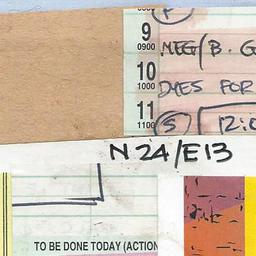 9
0900 NEG/B. G
10
1000 DYES FOR
11
1100 S 12:0
N24/E13
TO BE DONE TODAY (ACTION